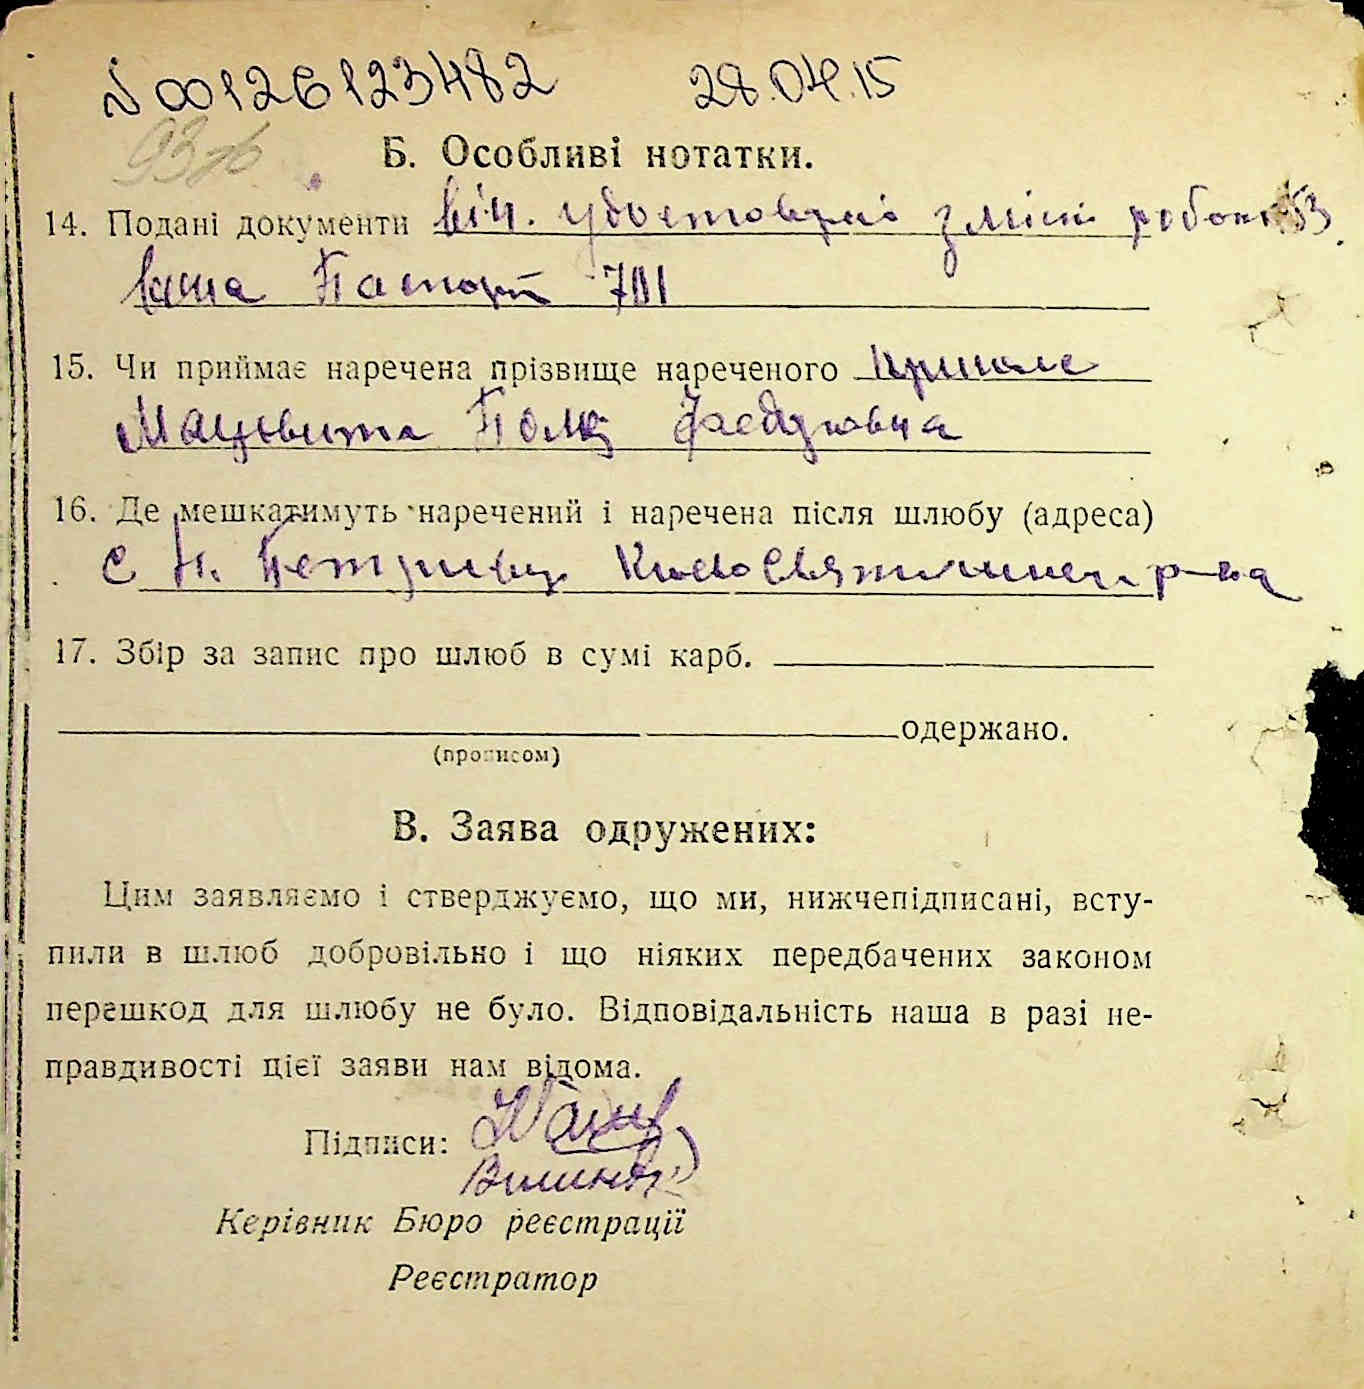 № 00126123482 28.04.15
Б. Особливі нотатки.
14. Подані документи він. удостоверені з місця роботи 53
вона Паспорт 701
15. Чи приймає наречена прізвище нареченого приймає
Мацьвита
16. Де мешкатимуть наречений і наречена після шлюбу (адреса)
с Н. Петривці КиевоСвятошинск. р-на
17. Збір за запис про шлюб в сумі карб.
одержано.
(прописом)
В. Заява одружених:
Цим заявляємо і стверджуємо, що ми, нижчепідписані, всту-
пили в шлюб добровільно і що ніяких передбачених законом
перешкод для шлюбу не було. Відповідальність наша в разі не-
правдивості цієї заяви нам відома.
Підписи:
Керівник Бюро реєстрації
Реєстратор